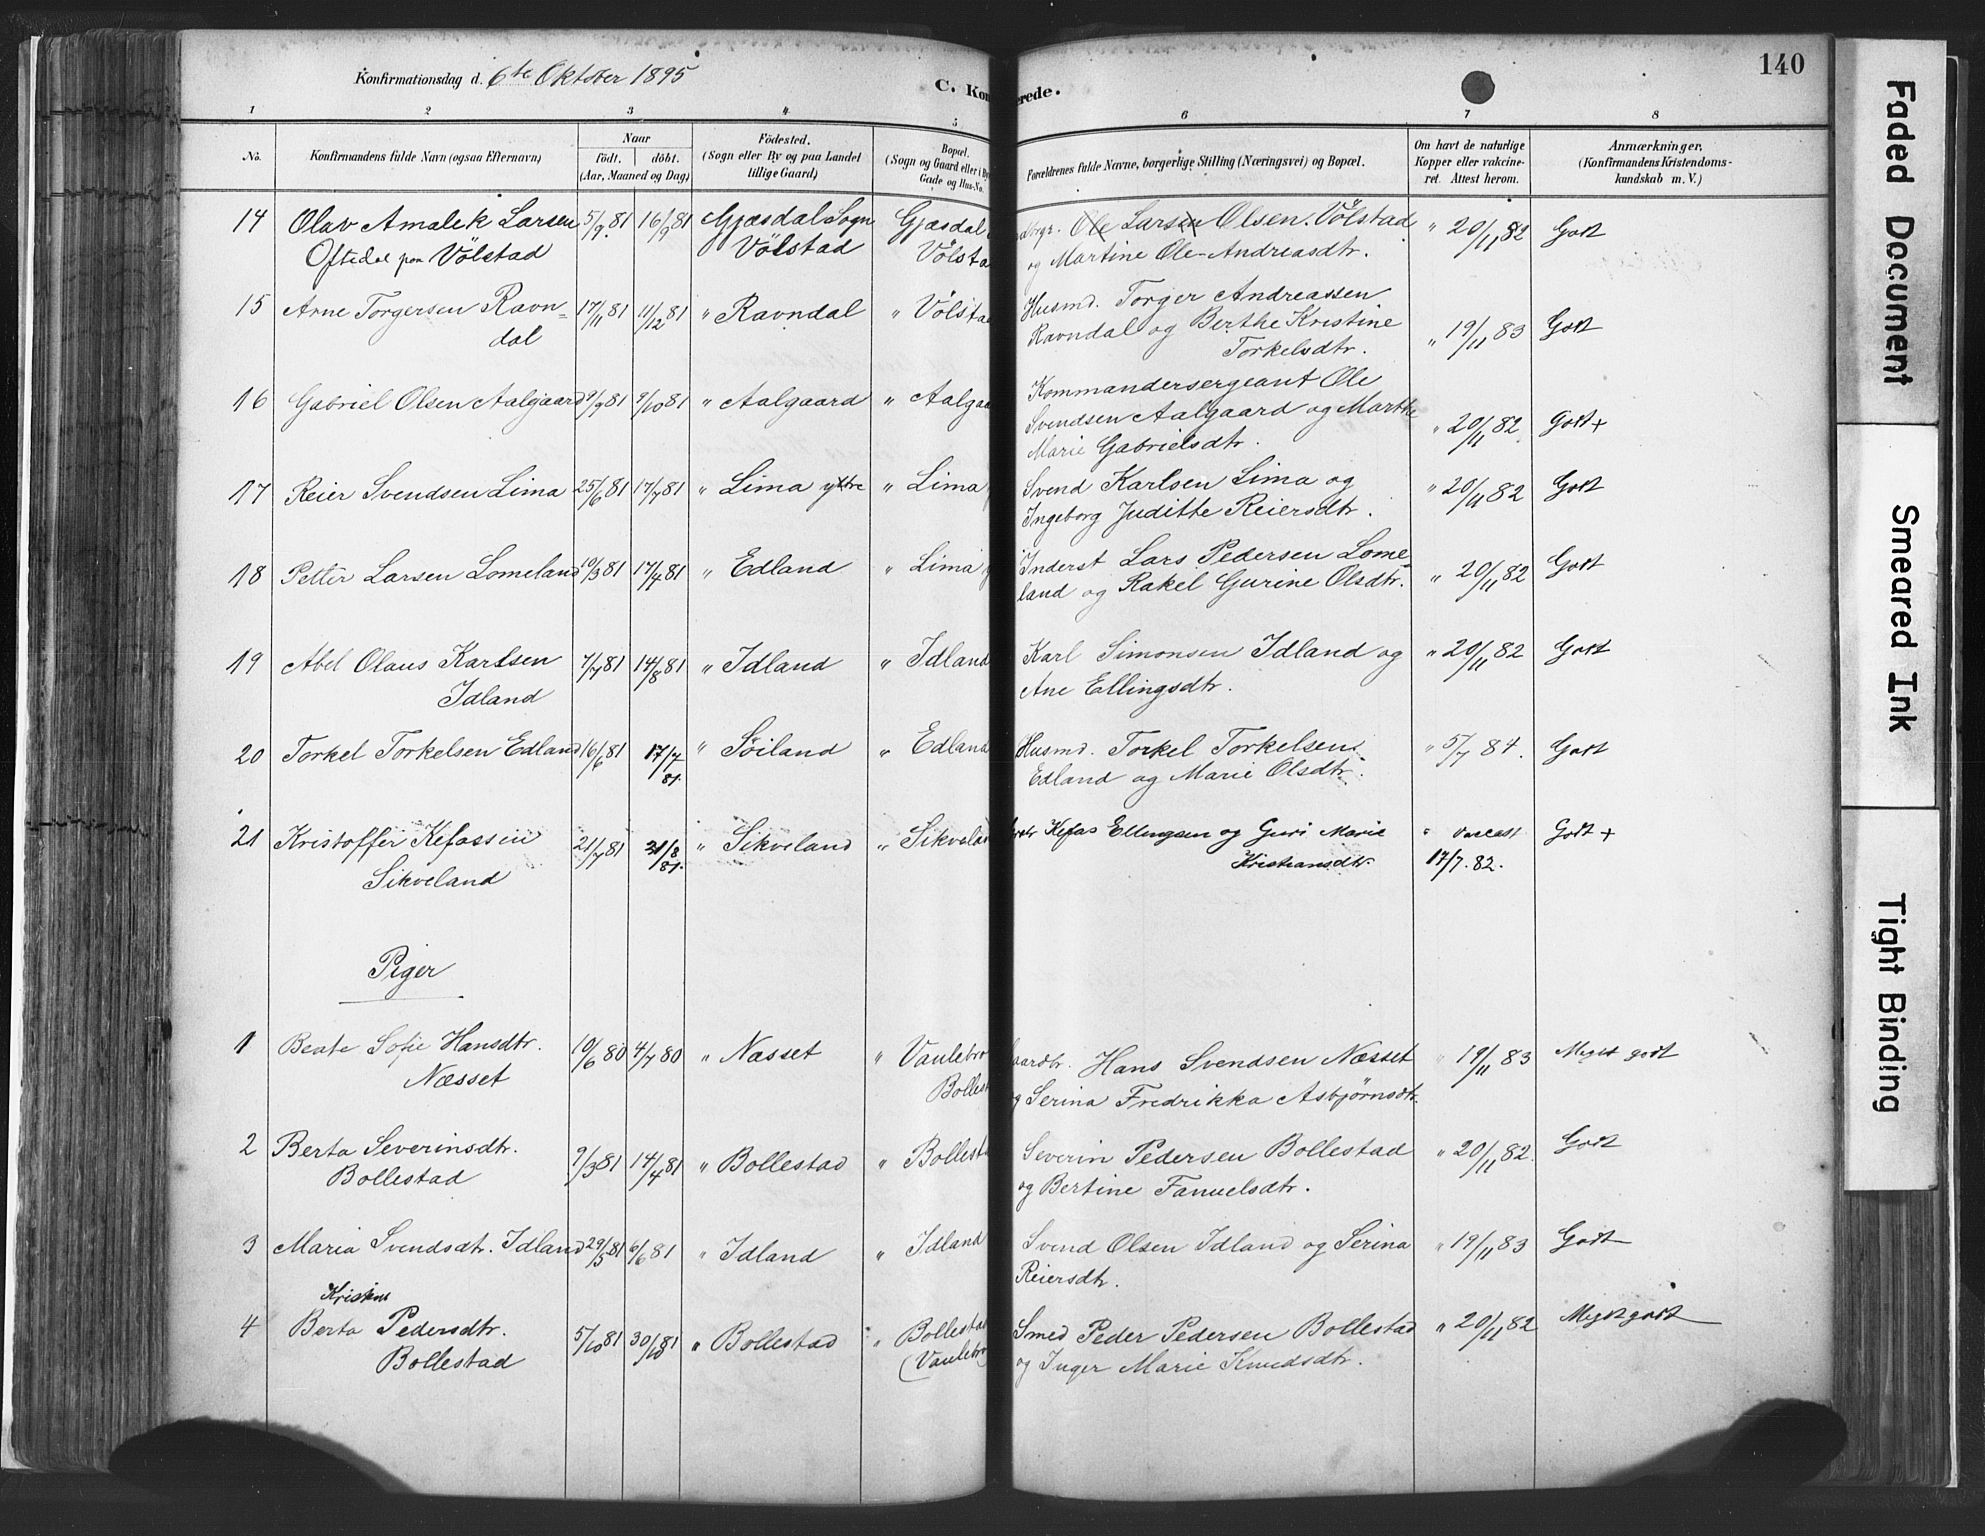 140
Konfirmationsdag d. 6te Oktober 1895
C. Kon erede.
1 2 3 4 5 6 7 8
No.
Konfirmandens fulde Navn (ogsaa Efternavn)
Naar
födt. döbt.
(Aar, Maaned og Dag)
Födested.
(Sogn eller By og paa Landet
tillige Gaard)
Bopæl.
(Sogn og Gaard eller i By
Gade og Hus-No.
Forældrenes fulde Navne, borgerlige Stilling (Næringsvei) og Bopæl.
Om havt de naturlige
Kopper eller vakcine-
ret. Attest herom.
Anmærkninger.
(Konfirmandens Kristendoms-
kundskab m. V.)
14 Olav Amalek Larsen 5/9 81 16/9 81 Gjæsdal Sogn Gjæsdal Ole Larsen Olsen Völstad " 20/11 82 Godt
Oftedal paa Völstad Völstad Völsta og Martine Ole-Andreasdtr.
15 Arne Torgersen Ravn= 17/11 81 11/12 81 " Ravndal " Völsta Husmd. Torger Andreassen
dal Ravndal og Berthe Kristine " 19/11 83 Godt
Torkelsdtr.
16 Gabriel Olsen Aalgaard 9/9 81 9/10 81 " Aalgaard " Aalgaa Kommandersergeant Ole
Svendsen Aalgaard og Marthe " 20/11 82 Godt +
Marie Gabrielsdtr.
17 Reier Svendsen Lima 25/6 81 17/7 81 " Lima ytre " Lima Svend Karlsen Lima og " 20/11 82 Godt
Ingeborg Juditte Reiersdtr.
18 Petter Larsen Lomeland 10/3 81 17/4 81 " Edland " Lima Inderst Lars Pedersen Lome= " 20/11 82 Godt
land og Rakel Gurine Olsdtr.
19 Abel Olaus Karlsen 7/7 81 14/8 81 " Idland " Idland Karl Simonsen Idland og " 20/11 82 Godt
Idland Ane Ellingsdtr.
20 Torkel Torkelsen Edland 16/6 81 17/7 81 " Söiland " Edland Husmd. Torkel Torkelsen " 5/7 84. Godt
Edland og Marie Olsdtr.
21 Kristoffer Kefassen 21/7 81 21/8 81. " Sikveland " Sikvela Kefas Ellingsen og Guri Marie " Godt +
Sikveland Kristiansdtr. 17/7. 82.
Piger
1 Beate Sofie Hansdtr. 10/6 80 4/7 80 " Næsset " Vaulebro aardbr. Hans Svendsen Næsset " 19/11 83 Meget godt
Næsset Bollest og Serina Fredrikka Asbjørnsdtr.
2 Berta Severinsdtr. 9/3 81 14/4 81 " Bollestad " Bollest Severin Pedersen Bollestad " 20/11 82. Godt
Bollestad og Bertine Fanuelsdtr.
3 Maria Svendsdtr. Idland 29/5 81 6/6 81 " Idland " Idland Svend Olsen Idland og Serina " 19/11 83 Godt
Reiersdtr.
Kristine
4 Berta Pedersdtr. 5/10 81 30/10 81 " Bollestad " Bollestad Smed Peder Pedersen Bollestad " 20/11 82 Megetgodt
Bollestad (Vaulebro og Inger Marie Knudsdtr.
Faded Document
Smeared Ink
Tight Binding